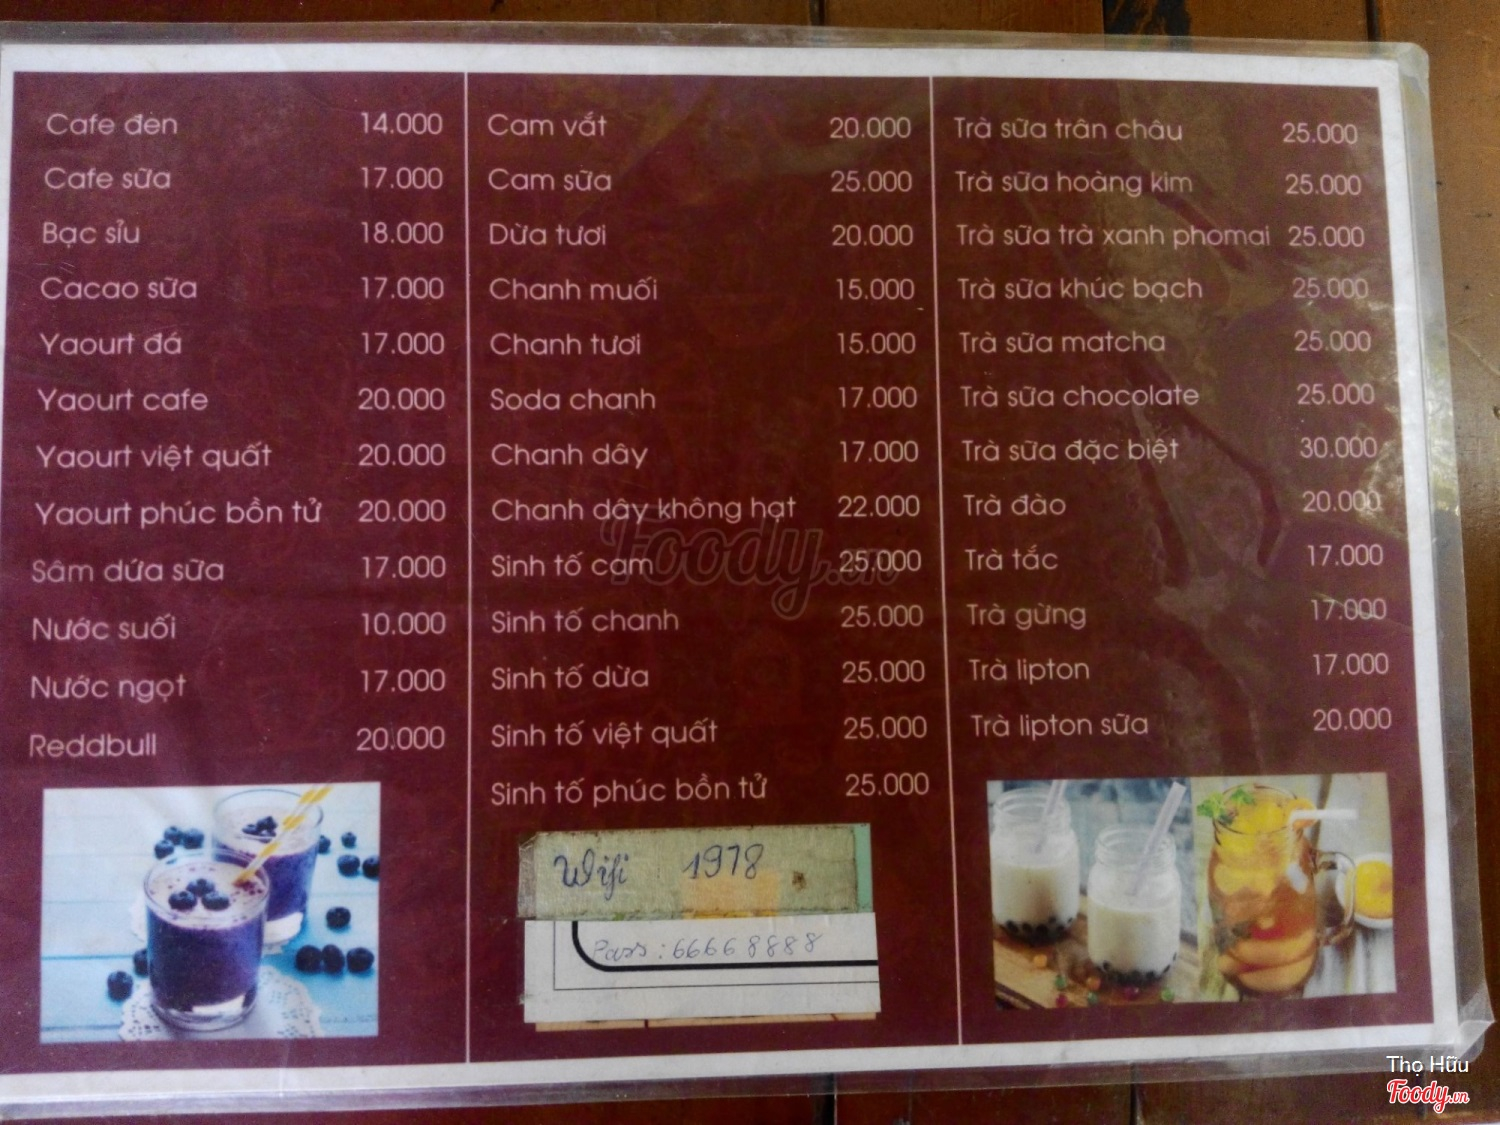 Cafe đen 14.000
Cafe sữa 17.000
Bạc sỉu 18.000
Cacao sữa 17.000
Yaourt đá 17.000
Yaourt cafe 20.000
Yaourt việt quất 20.000
Yaourt phúc bồn tử 20.000
Sâm dứa sữa 17.000
Nước suối 10.000
Nước ngọt 17.000
Reddbull 20.000
Cam vắt 20.000
Cam sữa 25.000
Dừa tươi 20.000
Chanh muối 15.000
Chanh tươi 15.000
Soda chanh 17.000
Chanh dây 17.000
Chanh dây không hạt 22.000
Sinh tố cam 25.000
Sinh tố chanh 25.000
Sinh tố dừa 25.000
Sinh tố việt quất 25.000
Sinh tố phúc bồn tử 25.000
Wifi : 1978
Pass : 66668888
Trà sữa trân châu 25.000
Trà sữa hoàng kim 25.000
Trà sữa trà xanh phomai 25.000
Trà sữa khúc bạch 25.000
Trà sữa matcha 25.000
Trà sữa chocolate 25.000
Trà sữa đặc biệt 30.000
Trà đào 20.000
Trà tắc 17.000
Trà gừng 17.000
Trà lipton 17.000
Trà lipton sữa 20.000
Foody.vn
Thọ Hữu
Foody.vn